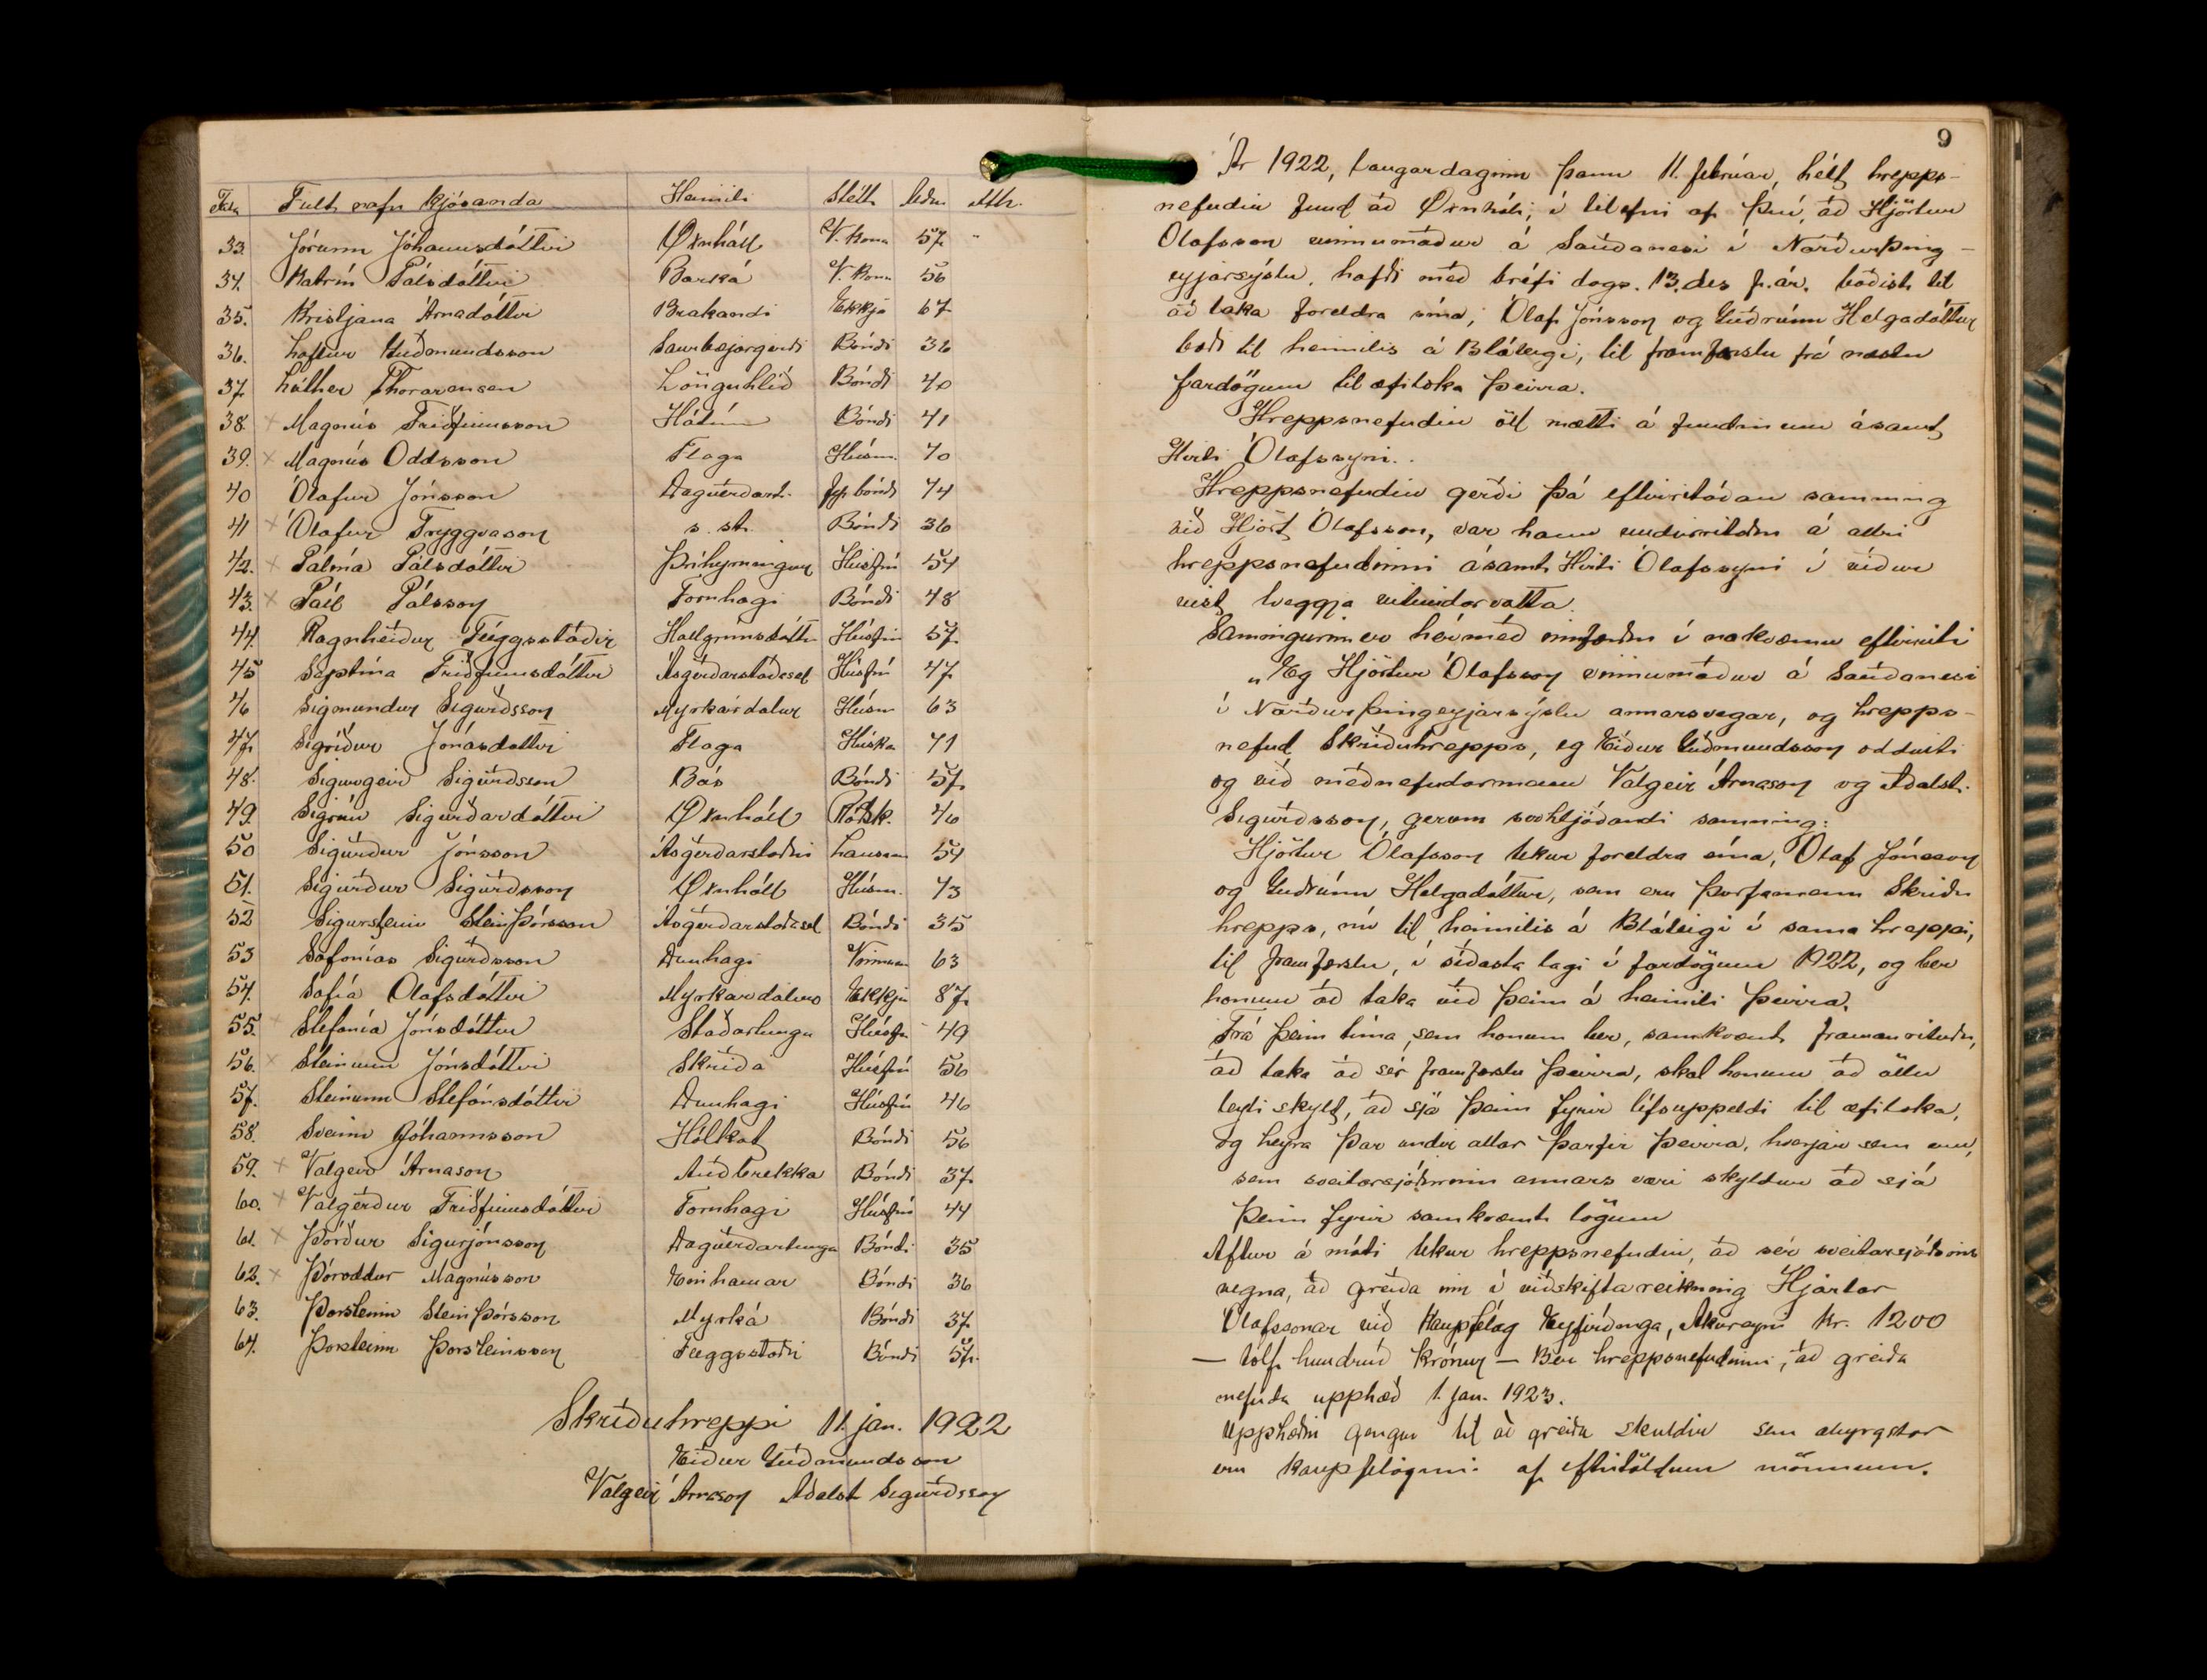 Tala Fult nafn kjósanda Heimili Stétt Aldur Ath.
33. Jórunn Jóhannsdóttir Öxnhóll V. kona 57 "
34. Katrín Pálsdóttir Barká V. kona 56
35. Kristjana Árnadóttir Brakandi Ekkja 67
36. Loftur Guðmundsson Saurbæjargerði Bóndi 36
37. Lúther Thorarensen Lönguhlíð Bóndi 40
38. × Magnús Friðfinnsson Hátún Bóndi 41
39. × Magnús Oddsson Flaga Húsm. 70
40 Ólafur Jónsson Dagverðart. fyr bóndi 74
41 × Ólafur Tryggvason s. st. Bóndi 36
42. × Pálína Pálsdóttir Þríhyrningur Húsfrú 54
43. × Páll Pálsson Fornhagi Bóndi 48
44. Ragnheiður Flöggsstaðir Hallgrímsdóttir Húsfrú 57
45 Septína Friðfinnsdóttir Ásgerðarstaðasel Húsfrú 47
46 Sigmundur Sigurðsson Myrkárdalur Húsm 63
47. Sigríður Jónasdóttir Flaga Húska 41
48. Sigurgeir Sigurðsson Bás Bóndi 57
49. Sigrún Sigurðardóttir Öxnhóll Ráðsk. 46
50 Sigurður Jónsson Ásgerðarstaðir Lausam 54
51. Sigurður Sigurðsson Öxnhóll Húsm. 43
52 Sigursteinn Steinþórsson Ásgerðarstaðasel Bóndi 35
53 Sófonías Sigurðsson Dunhagi Vinnum 63
54. Sofía Ólafsdóttir Myrkárdalur Ekkja 87
55. Stefanía Jónsdóttir Staðartunga Húsfr 49
56. × Steinunn Jónsdóttir Skriða Húsfrú 56
57. Steinunn Stefánsdóttir Dunhagi Húsfrú 46
58. Sveinn Jóhannsson Hólkot Bóndi 56
59. × Valgeir Árnason Auðbrekka Bóndi 37
60. × Valgerður Friðfinnsdóttir Fornhagi Húsfrú 44
61. × Þórður Sigurjónsson Dagverðartunga Bóndi 35
62. × Þóroddur Magnússon Einhamar Bóndi 36
63. Þorsteinn Steinþórsson Myrká Bóndi 37
64. Þorsteinn Þorsteinsson Flöggustaðir Bóndi 57
Skriðuhreppi 11. jan. 1922
Eiður Guðmundsson
Valgeir Árnason Aðalst Sigurðsson
9
Ár 1922, laugardaginn þann 11. febrúar, hélt hrepps-
nefndin fund að Öxnhóli, í tilefni af því, að Hjörtur
Ólafsson vinnumaður á Sauðanesi í Norðurþing-
eyjarsýslu, hafði með bréfi dags. 13. des f. ár. boðist til
að taka foreldra sína, Ólaf Jónsson og Guðrúnu Helgadóttur
bæði til heimilis á Bláteigi, til framfærslu frá næstu
fardögum til æfiloka þeirra.
Hreppsnefndin öll mætti á fundinum ásamt
Hirti Ólafssyni.
Hreppsnefndin gerði þá eftirritaðan samning
við Hjört Ólafsson, var hann undirritaður á allri
hreppsnefndinni ásamt Hirti Ólafssyni í viður
vist tveggja vitundarvotta.
Samningurinn er hérmeð innfærður í nákvæmu eftirriti
„Eg Hjörtur Ólafsson vinnumaður á Sauðanesi
í Norðurþingeyjarsýslu annarsvegar, og hrepps-
nefnd Skriðuhrepps, eg Eiður Guðmundsson oddviti
og við meðnefndarmenn Valgeir Árnason og Aðalst.
Sigurðsson, gerum svohljóðandi samning:
Hjörtur Ólafsson tekur foreldra sína, Ólaf Jónsson
og Guðrúnu Helgadóttur, sem eru þurfamenn Skriðu
hrepps, nú til heimilis á Bláteigi í sama hreppi,
til framfærslu, í síðasta lagi í fardögum 1922, og ber
honum að taka við þeim á heimili þeirra.
Frá þeim tíma, sem honum ber, samkvæmt framanrituðu,
að taka að sér framfærslu þeirra, skal honum að öllu
leyti skylt, að sjá þeim fyrir lífsuppeldi til æfiloka,
og heyra þar undir allar þarfir þeirra, hverjar sem eru,
sem sveitarsjóðurinn annars væri skyldur að sjá
þeim fyrir samkvæmt lögum
Aftur á móti tekur hreppsnefndin, að sér sveitarsjóðsins
vegna, að greiða inn í viðskiftareikning Hjartar
Ólafssonar við Kaupfélag Eyfirðinga, Akureyri kr. 1200
— tólf hundruð krónur — Ber hreppsnefndinni, að greiða
nefnda upphæð 1. jan. 1923.
Upphæðin gengur til að greiða skuldir sem ábyrgstar
eru kaupfélaginu af eftirtöldum mönnum.